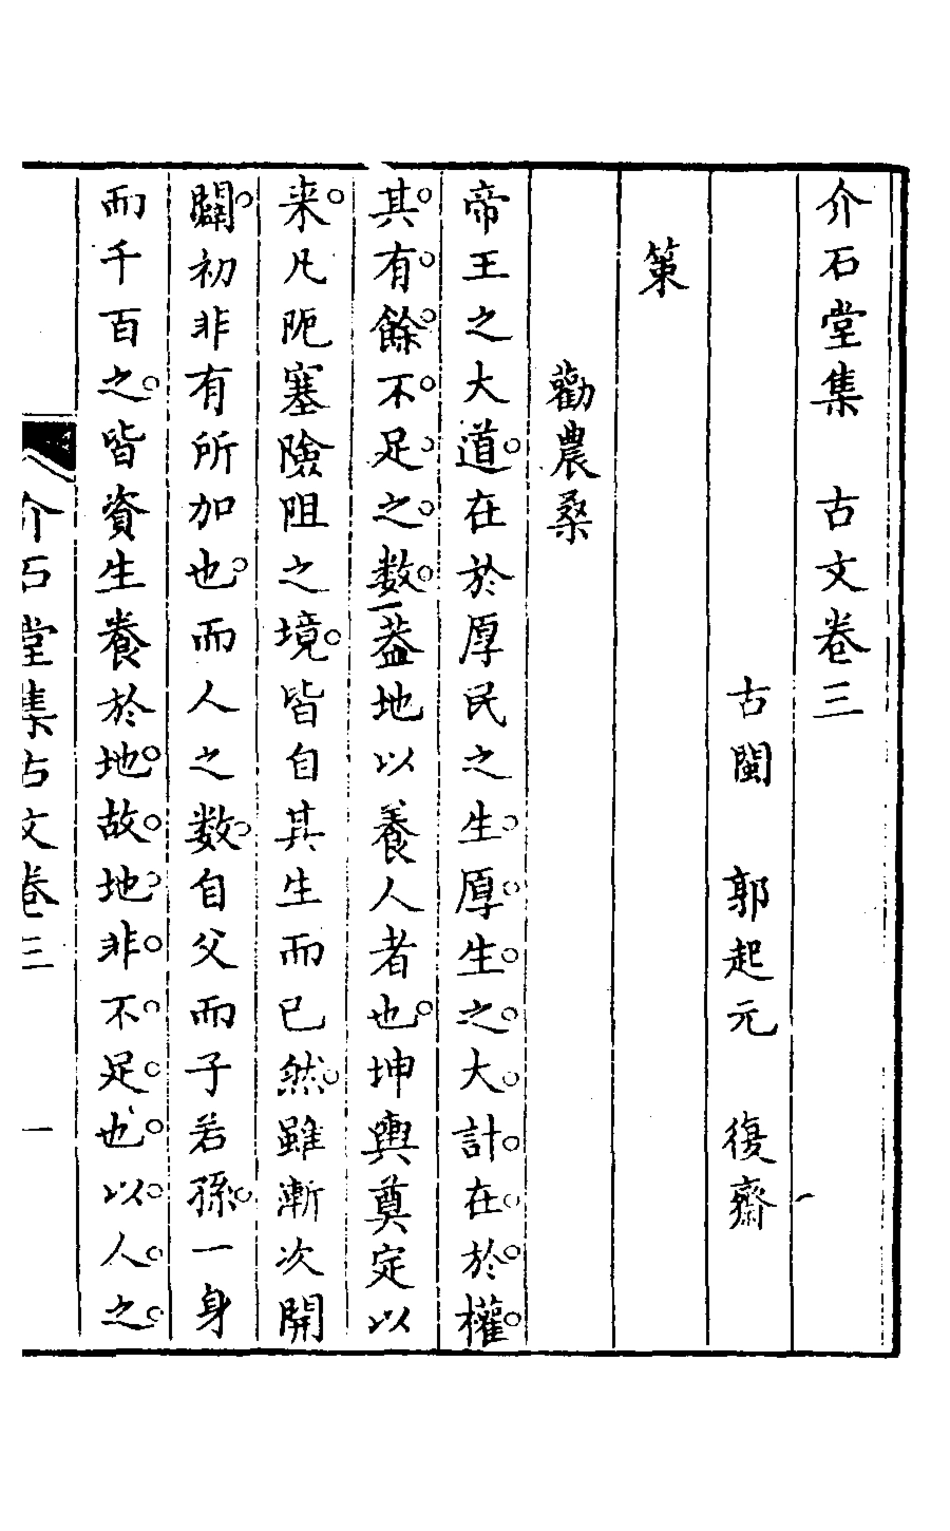 介石堂集　古文卷三
古閩　郭起元　復齋
策
勸農桑
帝王之大道在於厚民之生厚生之大計在於權
其有餘不足之数蓋地以養人者也坤輿奠定以
来凡阨塞險阻之境皆自其生而已然雖漸次開
闢初非有所加也而人之数自父而子若孫一身
而千百之皆資生養於地故地非不足也以人之
介石堂集古文卷三　一